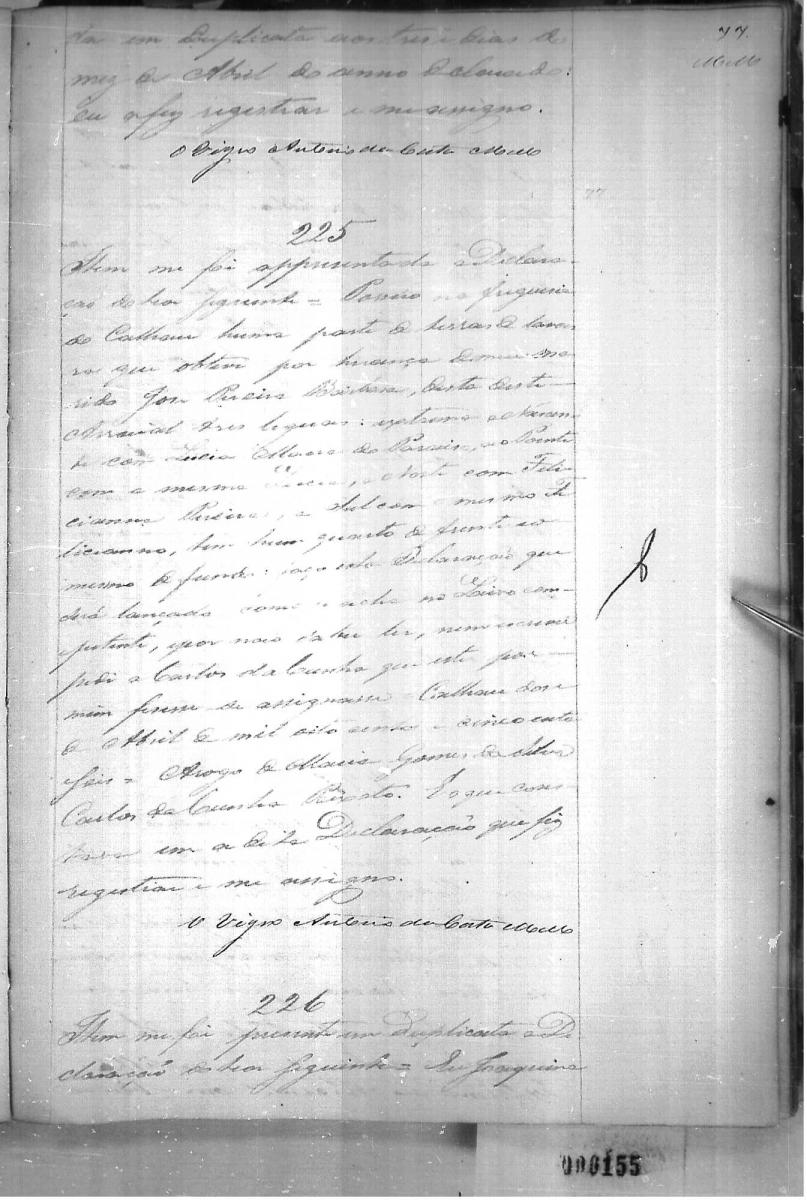 77.
Mello
da em Duplicata aos tres dias do
mez de Abril do anno declarado:
eu o fiz registrar e me assigno.
O Vigro Antonio da Costa Mello
77
225
Item me foi appresentada a Declara-
ção do teor seguinte = Possuo na freguesia
do Calhau huma parte de terras de lavou
ra que obtive por herança de meu ma
rido José Pereira Barbosa, dista deste
Arraial tres leguas: extrema o Nascen
te com Lucia Maria do , ao Poente
com a mesma Lucia, o Norte com Feli
cianno Pereira, o Sul com o mesmo Fe
licianno, tem hum quarto de frente e o
mesmo de fundo: faço esta Declaração que
será lançada como se acha no Livro com-
petente, e por não saber ler, nem escrever
pedi a Carlos da Cunha que este por
mim fizesse e assignasse Calhau dose
de Abril de mil oito centos e cincoenta
e seis = Arogo de Maria Gomes da Silva
Carlos da Cunha . E o que cons
tava em a dita Declaração que fiz
registrar e me assigno.
O Vigro Antonio da Costa Mello
226
Item me foi presente em Duplicata a De
claração do teor seguinte = Eu Joaquina
000155